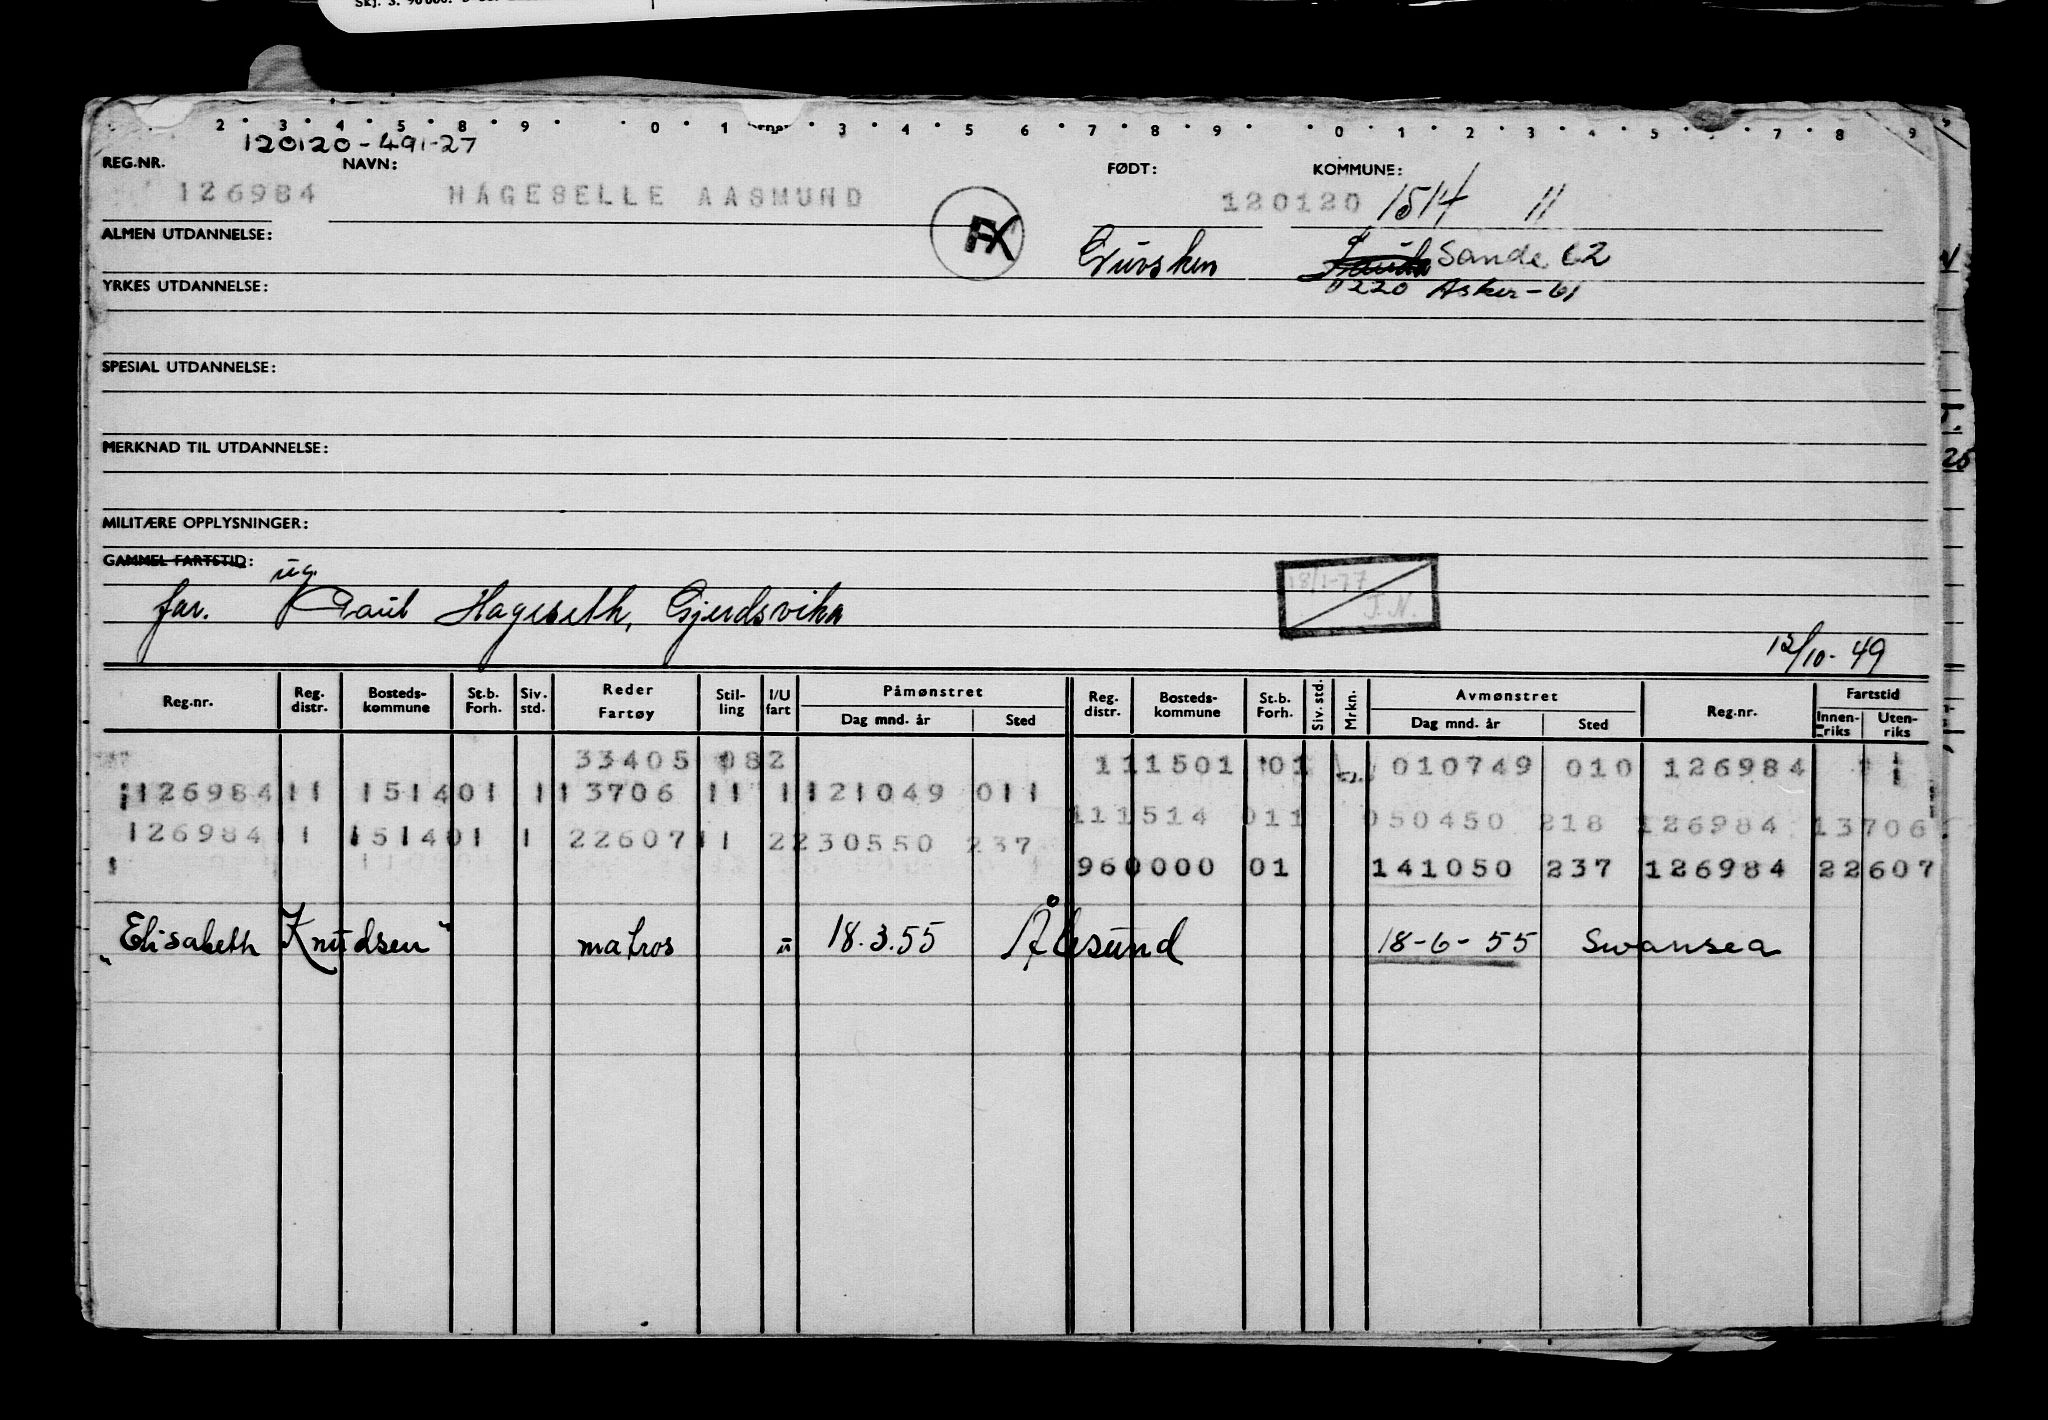 120120-491-27
REG.NR. NAVN: FØDT: KOMMUNE:
126984 HAGESELLE AASMUND 120120 1514 11
FX
ALMEN UTDANNELSE: Gursken Sande 62
YRKES UTDANNELSE: 0220 Asker-61
SPESIAL UTDANNELSE:
MERKNAD TIL UTDANNELSE:
MILITÆRE OPPLYSNINGER:
GAMMEL FARTSTID:
ug.
far. Paul Hageseth, Gjerdsvika
18/1-77
J.N.
12/10-49
Reg.nr. Reg. distr. Bosteds-kommune St.b. Forh. Siv. std. Reder Fartøy Stil-ling I/U fart Påmønstret Dag mnd. år Sted Reg. distr. Bosteds-kommune St.b. Forh. Siv. std. Mrkn. Avmønstret Dag mnd. år Sted Reg.nr. Fartstid Innen-riks Uten-riks
33405 082 111501 01 010749 010 126984
126984 11 151401 1 13706 11 1 121049 011
111514 011 050450 218 126984 13706
126984 11 151401 1 22607 11 2 230550 237
960000 01 141050 237 126984 22607
"Elisabeth Knudsen" matros u 18.3.55 Ålesund 18-6-55 Swansea